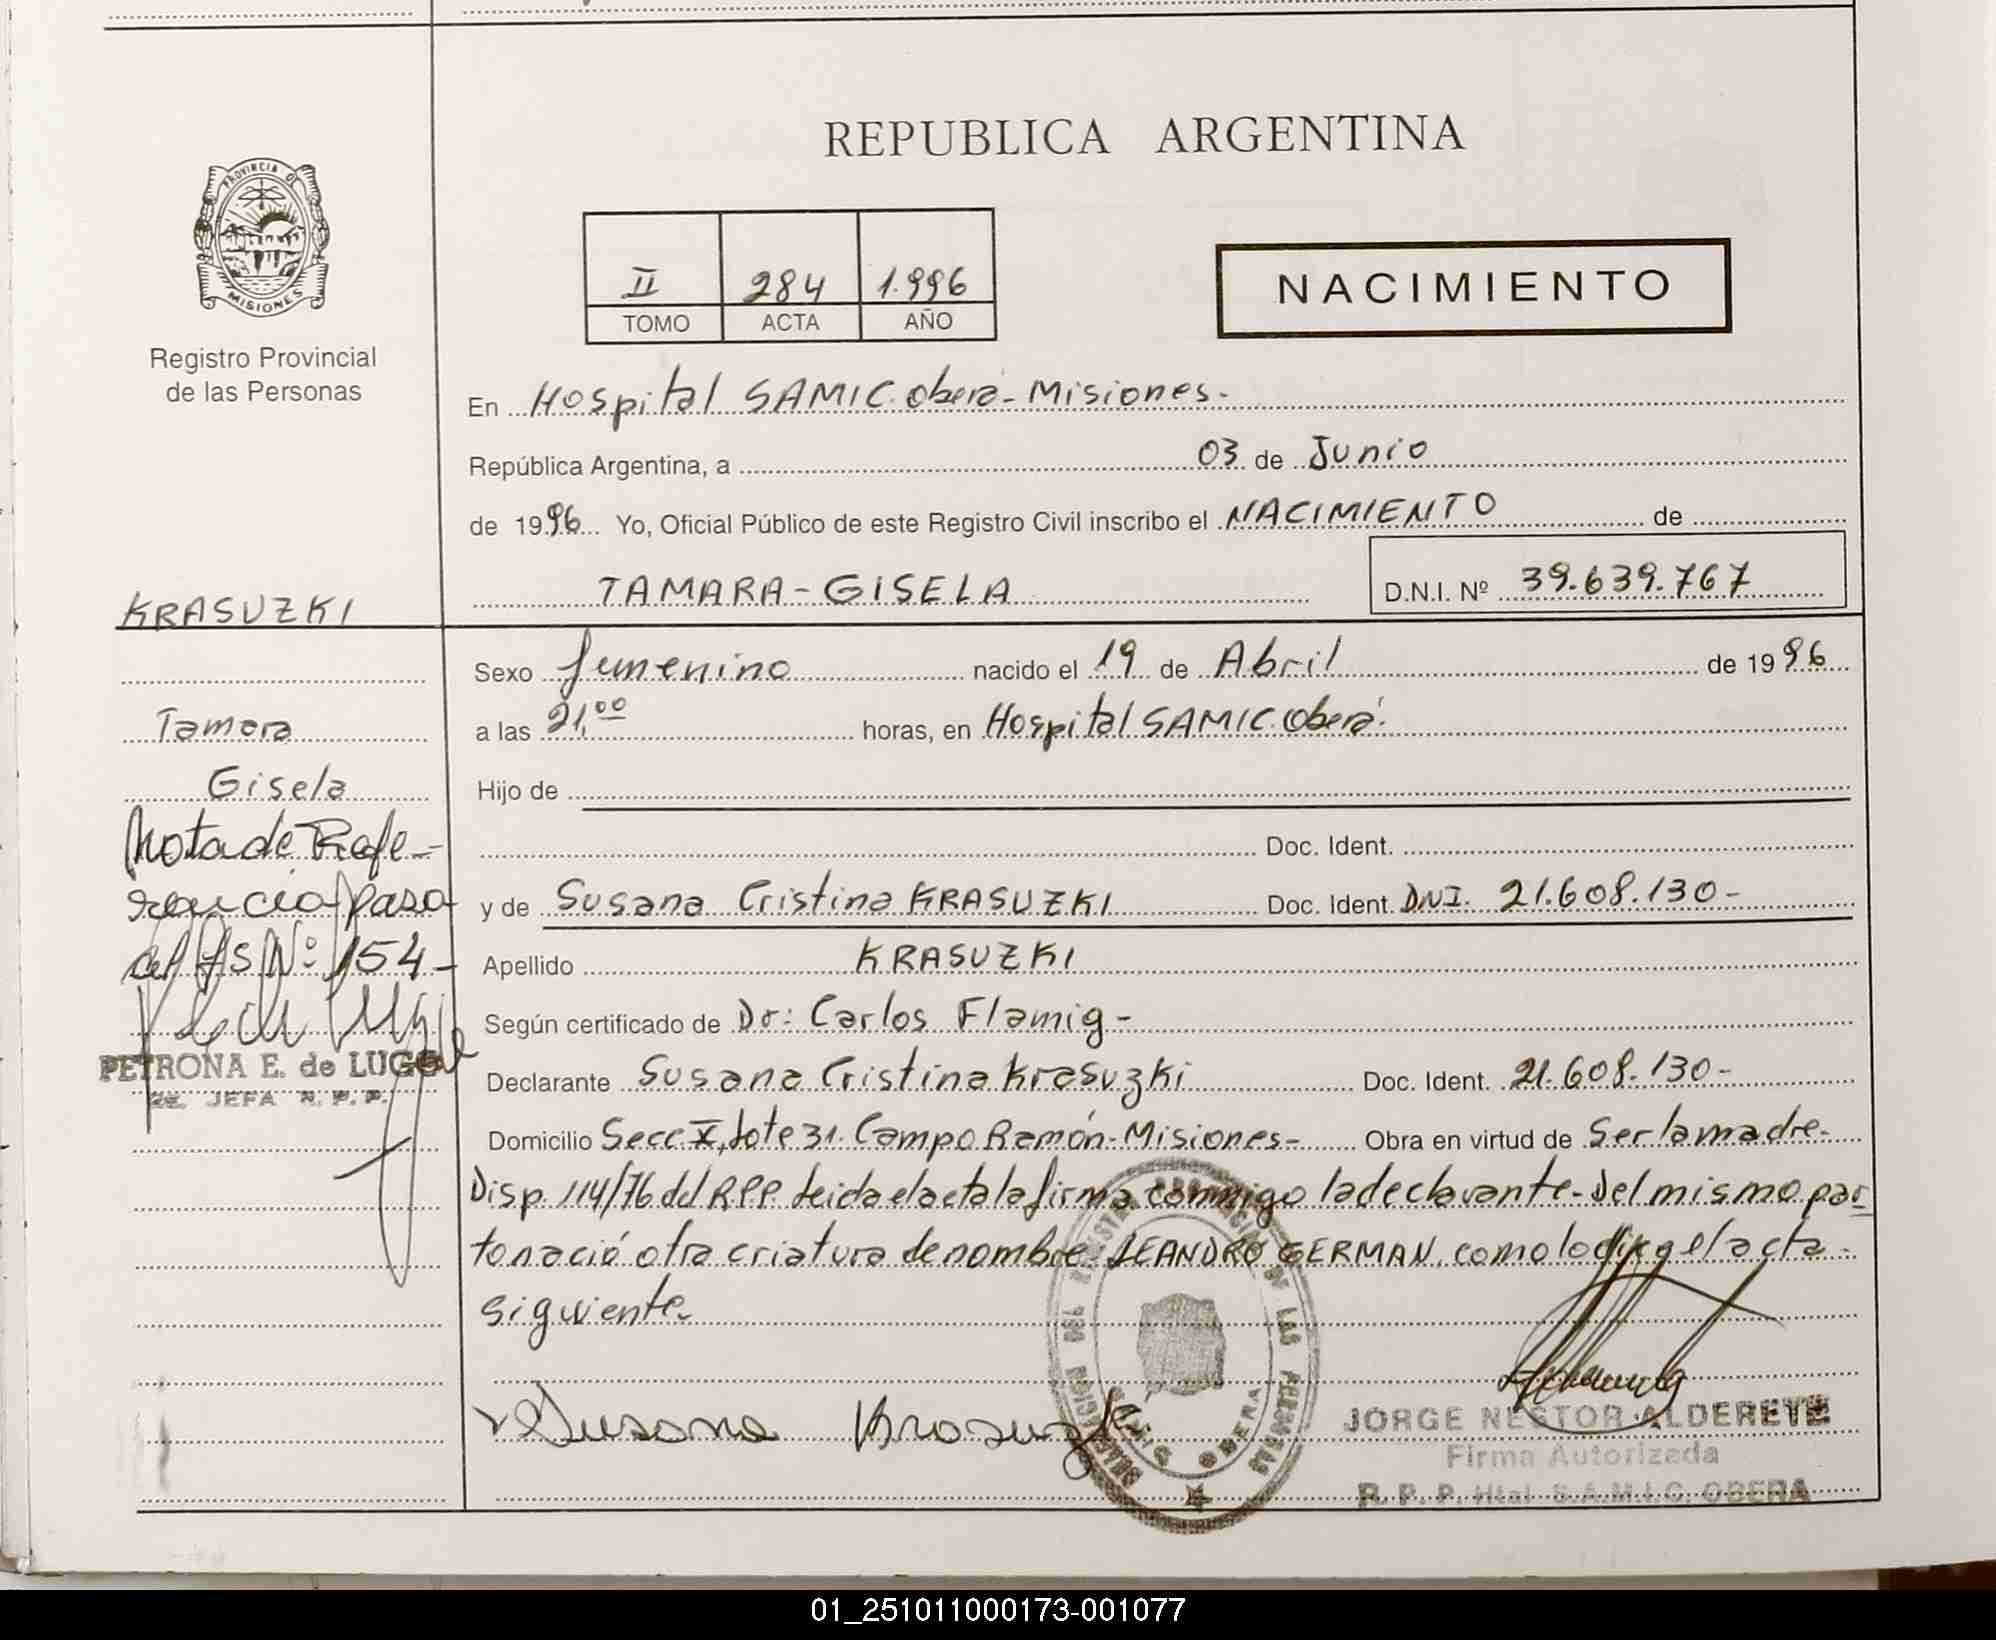 REPUBLICA ARGENTINA
PROVINCIA DE
MISIONES
Registro Provincial
de las Personas
II 284 1.996
TOMO ACTA AÑO
NACIMIENTO
En Hospital SAMIC. Oberá - Misiones.-
República Argentina, a 03 de Junio
de 1996 Yo, Oficial Público de este Registro Civil inscribo el NACIMIENTO de
TAMARA - GISELA
D.N.I. Nº 39.639.767
KRASUZKI
Tamara
Gisela
Nota de Refe-
rencia pasa
al FS Nº 154-
PETRONA E. de LUGO
2a. JEFA R. P. P.
Sexo femenino nacido el 19 de Abril de 1996
a las 21,00 horas, en Hospital SAMIC. Oberá.
Hijo de
Doc. Ident.
y de Susana Cristina KRASUZKI Doc. Ident. DNI. 21.608.130-
Apellido KRASUZKI
Según certificado de Dr: Carlos Flamig -
Declarante Susana Cristina Krasuzki Doc. Ident. 21.608.130-
Domicilio Secc. X, Lote 31. Campo Ramón - Misiones- Obra en virtud de Ser la madre-
Disp. 114/76 del R.P.P. Leida el acta la firma conmigo la declarante - Del mismo par-
to nació otra criatura de nombre LEANDRO GERMAN, como lo dice el acta
siguiente-
Susana Krasuzki
OBERA
JORGE NESTOR ALDERETE
Firma Autorizada
R. P. P. Htal. S.A.M.I.C. OBERA
01_251011000173-001077